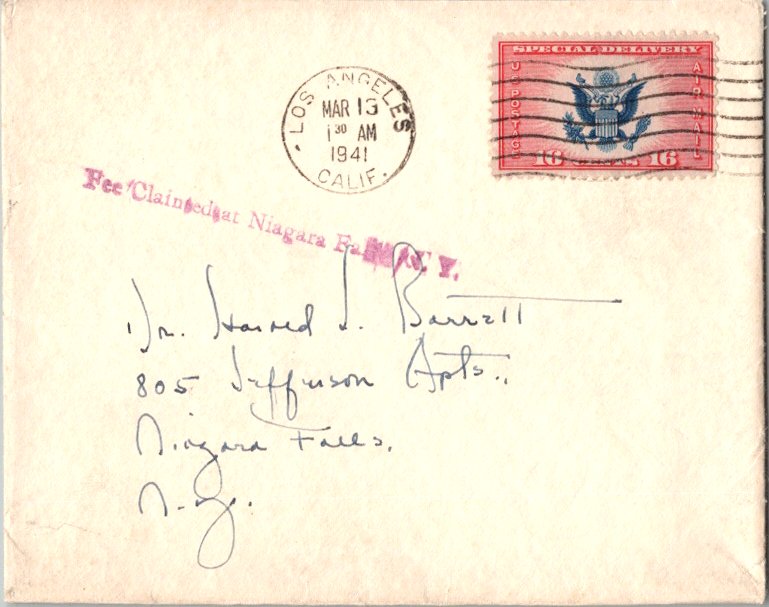 SPECIAL DELIVERY
U.S. POSTAGE
AIR MAIL
16 CENTS 16
LOS ANGELES
MAR 13
1 30 AM
1941
CALIF.
Fee Claimed at Niagara Falls, N. Y.
Dr. Harred L. Barrett
805 Jefferson Apts.,
Niagara Falls,
N.Y.